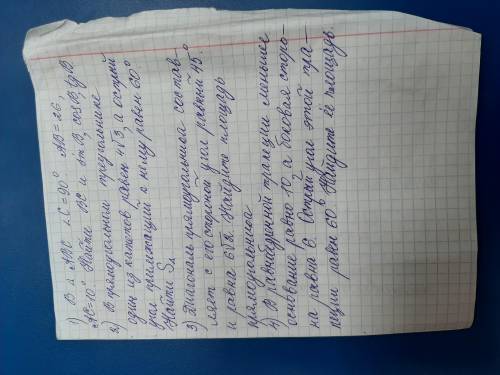 1) В Δ ABC ∠C=90° AB=26,
AC=10. Найти BC и sin B, cos B, tg B.
2) В прямоугольном треугольнике
один из катетов равен 4√3, а острый
угол прилежащий к нему равен 60°
Найти S
3) Диагональ прямоугольника состав-
ляет с его стороной угол равный 45°
и равна 6√2. Найдите площадь
прямоугольника
4) В равнобедренной трапеции меньшее
основание равно 10, а боковая сторо-
на равна 6. Острый угол этой тра-
пеции равен 60°. Найдите её площадь.